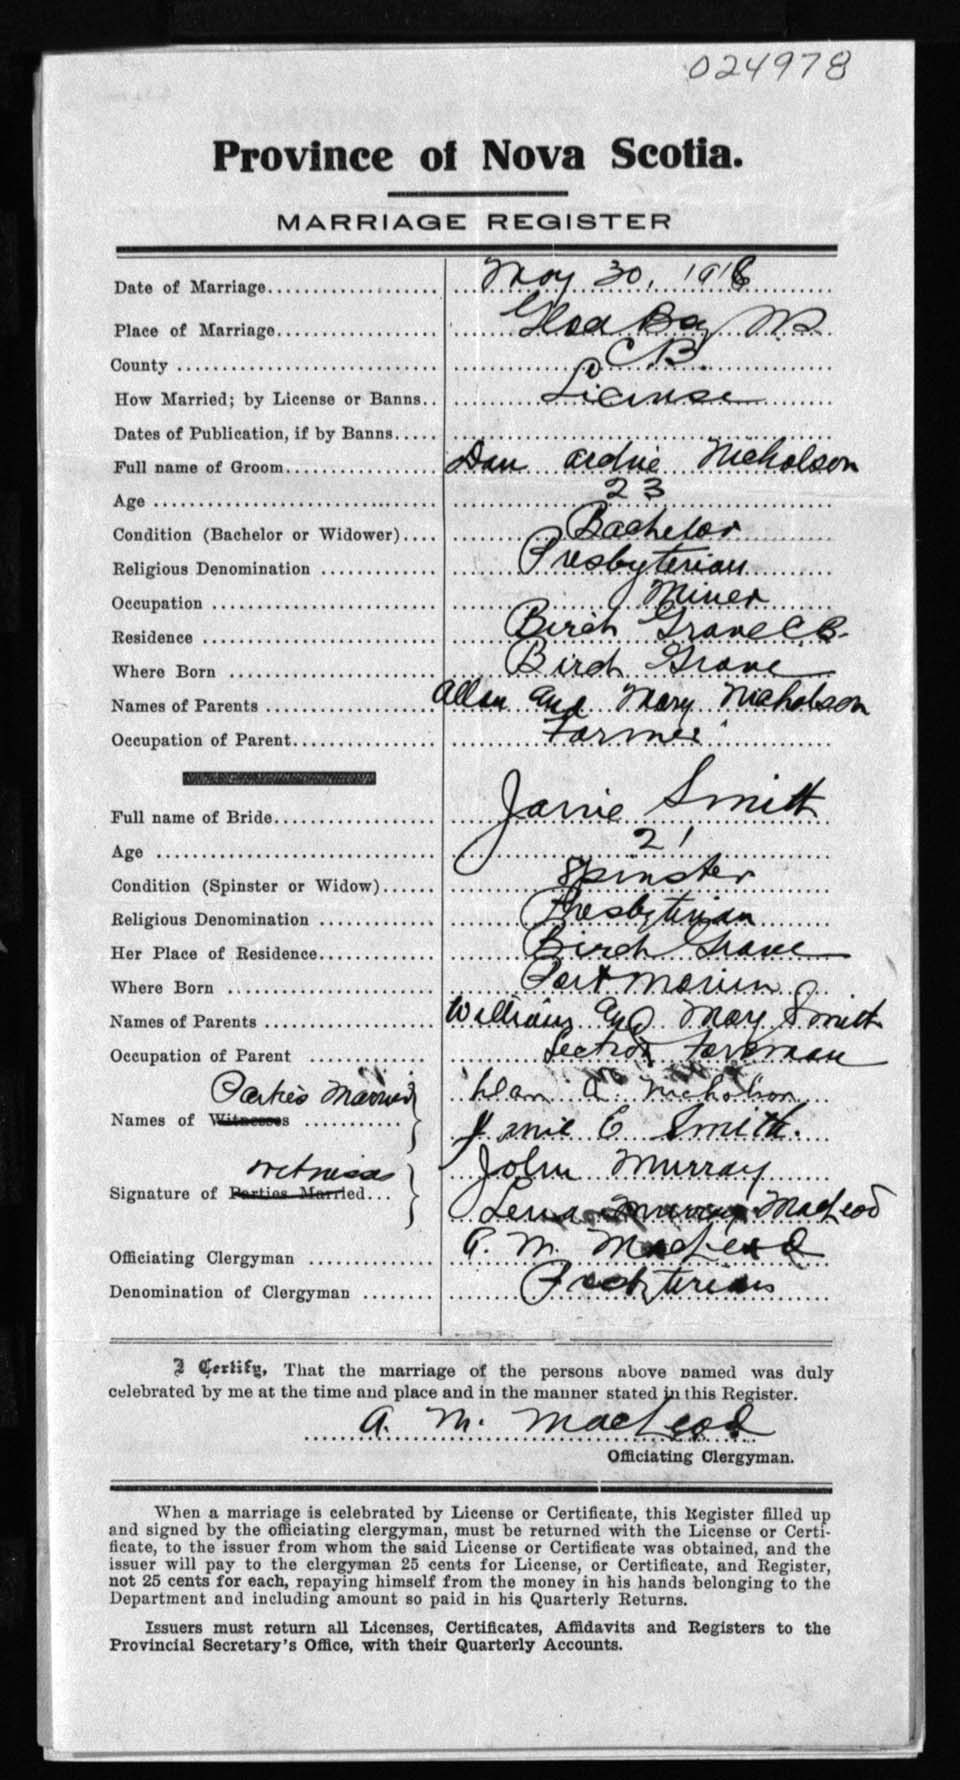 024978
Province of Nova Scotia.
MARRIAGE REGISTER
Date of Marriage May 30, 1918
Place of Marriage Glace Bay NS
County C B.
How Married; by License or Banns License
Dates of Publication, if by Banns
Full name of Groom Dan Archie Nicholson
Age 23
Condition (Bachelor or Widower) Bachelor
Religious Denomination Presbyterian
Occupation Miner
Residence Birch Grove C B.
Where Born Birch Grove
Names of Parents Allan and Mary Nicholson
Occupation of Parent Farmer
Full name of Bride Janie Smith
Age 21
Condition (Spinster or Widow) Spinster
Religious Denomination Presbyterian
Her Place of Residence Birch Grove
Where Born Port Morien
Names of Parents William and Mary Smith
Occupation of Parent Section Foreman
Parties Married Dan A. Nicholson
Names of Witnesses Janie E Smith.
Witnesses John Murray
Signature of Parties Married Lena Murray MacLeod
Officiating Clergyman A. M. MacLeod
Denomination of Clergyman Presbyterian
I Certify, That the marriage of the persons above named was duly
celebrated by me at the time and place and in the manner stated in this Register.
A. M. MacLeod
Officiating Clergyman.
When a marriage is celebrated by License or Certificate, this Register filled up
and signed by the officiating clergyman, must be returned with the License or Certi-
ficate, to the issuer from whom the said License or Certificate was obtained, and the
issuer will pay to the clergyman 25 cents for License, or Certificate, and Register,
not 25 cents for each, repaying himself from the money in his hands belonging to the
Department and including amount so paid in his Quarterly Returns.
Issuers must return all Licenses, Certificates, Affidavits and Registers to the
Provincial Secretary's Office, with their Quarterly Accounts.